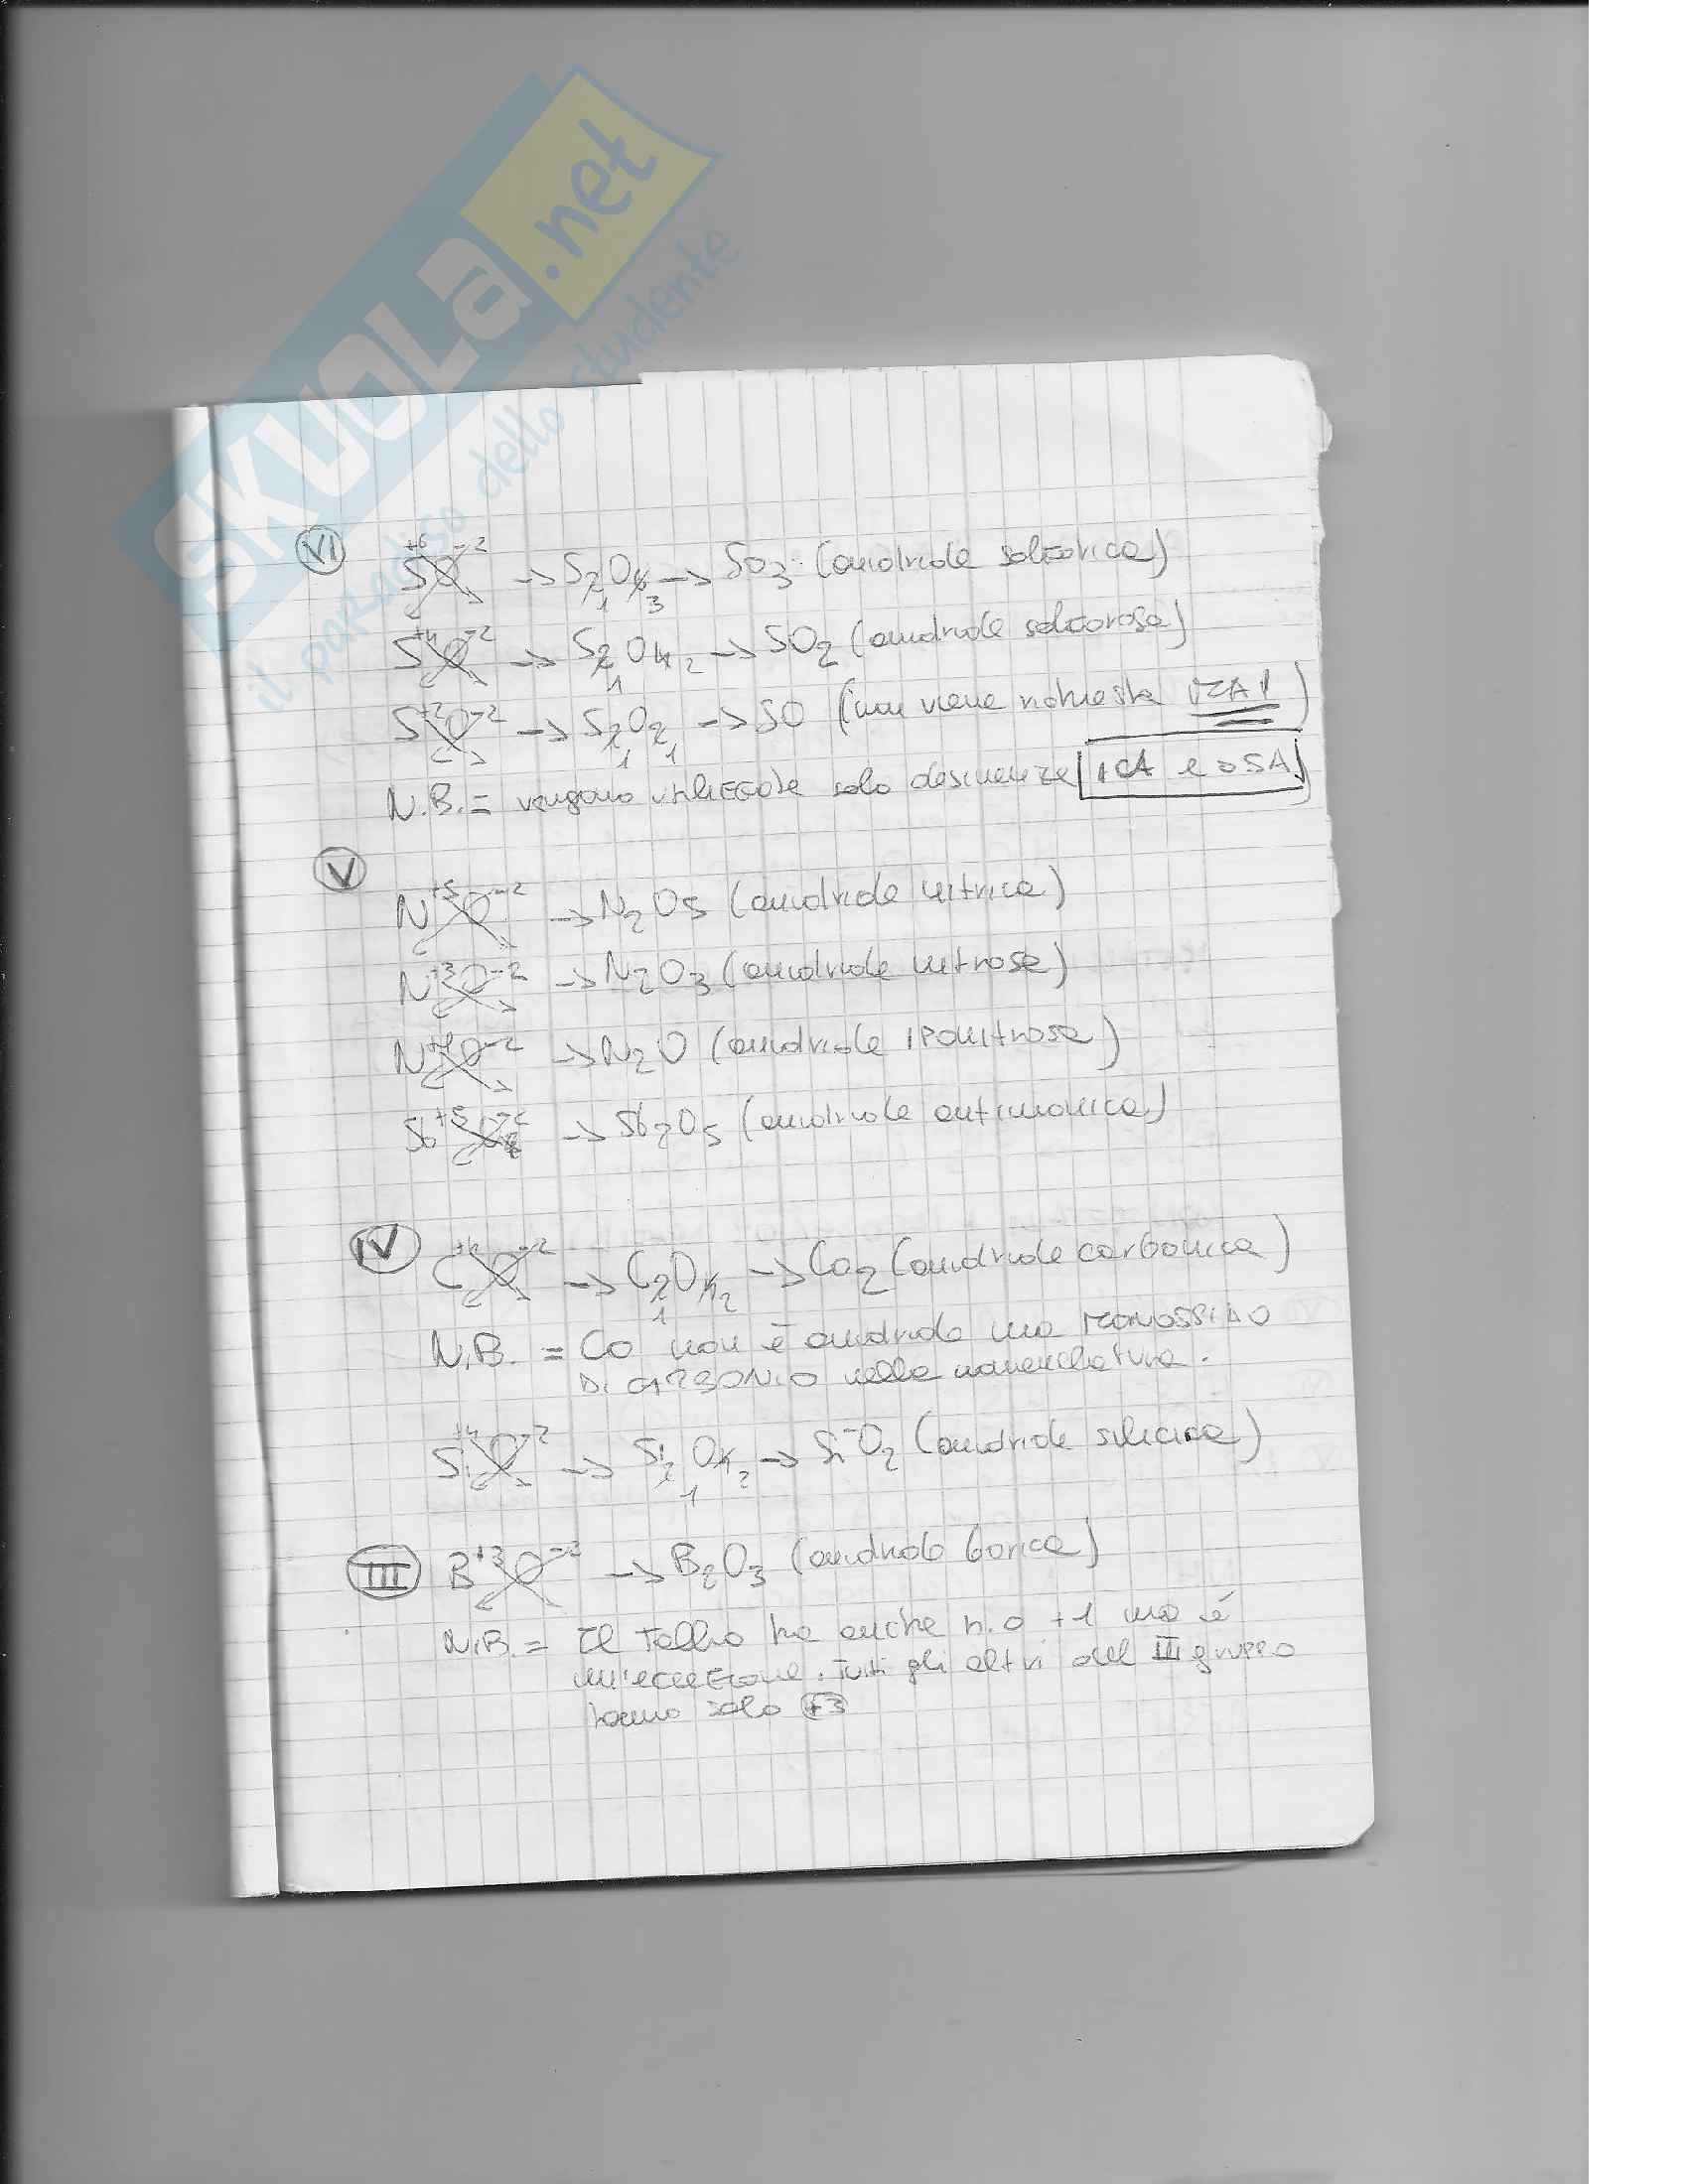 SKUOLa.net
il paradiso dello studente
VI S+6 O-2 -> S2O6 1 3 -> SO3 (anidride solforica)
S+4 O-2 -> S2O4 1 2 -> SO2 (anidride solforosa)
S+2 O-2 -> S2O2 1 1 -> SO (non viene richiesta MAI)
N.B. = vengono utilizzate solo desinenze ICA e OSA
V
N+5 O-2 -> N2O5 (anidride nitrica)
N+3 O-2 -> N2O3 (anidride nitrosa)
N+1 O-2 -> N2O (anidride IPOnitrosa)
Sb+5 O-2 -> Sb2O5 (anidride antimonica)
IV C+4 O-2 -> C2O4 1 2 -> CO2 (anidride carbonica)
N.B. = CO non è anidride ma MONOSSIDO
DI CARBONIO nella nomenclatura.
Si+4 O-2 -> Si2O4 1 2 -> SiO2 (anidride silicica)
III B+3 O-2 -> B2O3 (anidride borica)
N.B. = Il Tallio ha anche n.o +1 ma é
un'eccezione. Tutti gli altri del III gruppo
hanno solo +3